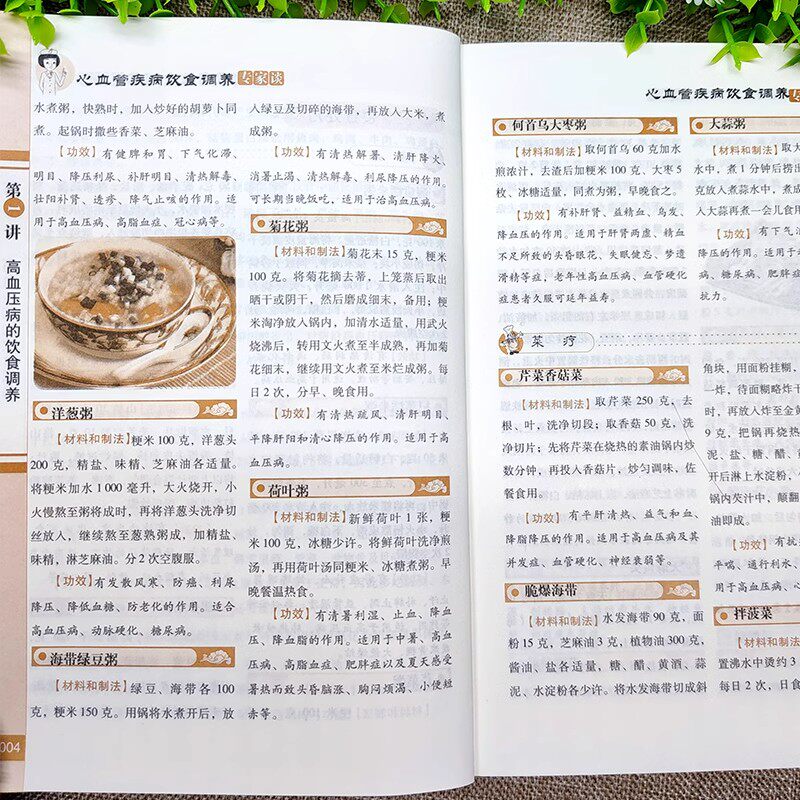 心血管疾病饮食调养专家谈
第一讲 高血压病的饮食调养
004
水煮粥，快熟时，加入炒好的胡萝卜同
煮。起锅时撒些香菜、芝麻油。
【功效】有健脾和胃、下气化滞、
明目、降压利尿、补肝明目、清热解毒、
壮阳补肾、透疹、降气止咳的作用。适
用于高血压病、高脂血症、冠心病等。
洋葱粥
【材料和制法】粳米 100 克，洋葱头
200 克，精盐、味精、芝麻油各适量。
将粳米加水 1 000 毫升，大火烧开，小
火慢熬至粥将成时，再将洋葱头洗净切
丝放入，继续熬至葱熟粥成，加精盐、
味精，淋芝麻油。分 2 次空腹服。
【功效】有发散风寒、防癌、利尿
降压、降低血糖、防老化的作用。适合
高血压病、动脉硬化、糖尿病。
海带绿豆粥
【材料和制法】绿豆、海带各 100
克，粳米 150 克。用锅将水煮开后，放
入绿豆及切碎的海带，再放入大米，煮
成粥。
【功效】有清热解暑、清肝降火、
消暑止渴、清热解毒、利尿降压的作用。
可长期当晚饭吃，适用于治高血压病。
菊花粥
【材料和制法】菊花末 15 克，粳米
100 克。将菊花摘去蒂，上笼蒸后取出
晒干或阴干，然后磨成细末，备用；粳
米淘净放入锅内，加清水适量，用武火
烧沸后，转用文火煮至半成熟，再加菊
花细末，继续用文火煮至米烂成粥。每
日 2 次，分早、晚食用。
【功效】有清热疏风、清肝明目、
平降肝阳和清心降压的作用。适用于高
血压病。
荷叶粥
【材料和制法】新鲜荷叶 1 张，粳
米 100 克，冰糖少许。将鲜荷叶洗净煎
汤，再用荷叶汤同粳米、冰糖煮粥。早
晚餐温热食。
【功效】有清暑利湿、止血、降血
压、降血脂的作用。适用于中暑、高血
压病、高脂血症、肥胖症以及夏天感受
暑热而致头昏脑涨、胸闷烦渴、小便短
赤等。
心血管疾病饮食调养
何首乌大枣粥
【材料和制法】取何首乌 60 克加水
煎浓汁，去渣后加粳米 100 克、大枣 5
枚、冰糖适量，同煮为粥，早晚食之。
【功效】有补肝肾、益精血、乌发、
降血压的作用。适用于肝肾两虚、精血
不足所致的头昏眼花、失眠健忘、梦遗
滑精等症，老年性高血压病、血管硬化
症患者久服可延年益寿。
菜 疗
芹菜香菇菜
【材料和制法】取芹菜 250 克，去
根、叶，洗净切段；取香菇 50 克，洗
净切片；先将芹菜在烧热的素油锅内炒
数分钟，再投入香菇片，炒匀调味，佐
餐食用。
【功效】有平肝清热、益气和血、
降脂降压的作用。适用于高血压病及其
并发症、血管硬化、神经衰弱等。
脆爆海带
【材料和制法】水发海带 90 克，面
粉 15 克，芝麻油 3 克，植物油 300 克，
酱油、盐各适量，糖、醋、黄酒、蒜
泥、水淀粉各少许。将水发海带切成斜
大蒜粥
【材料和制法】取大
水中，煮 1 分钟后捞出
克放入煮蒜水中，煮成
入大蒜再煮一会儿食用
【功效】有下气消
降压的作用。适用于
病、糖尿病、肥胖症
抗力。
角块，用面粉挂糊，
一炸，待面糊略炸干
时，再放入炸至金黄
9 克，把锅再烧热
泥、盐、糖、醋、酱
开后淋上水淀粉，
锅内芡汁中，颠翻
油即成。
【功效】有抗
平喘，通行利水、
用于高血压病、心
拌菠菜
【材料和制法】
置沸水中烫约 3
每日 2 次，日食